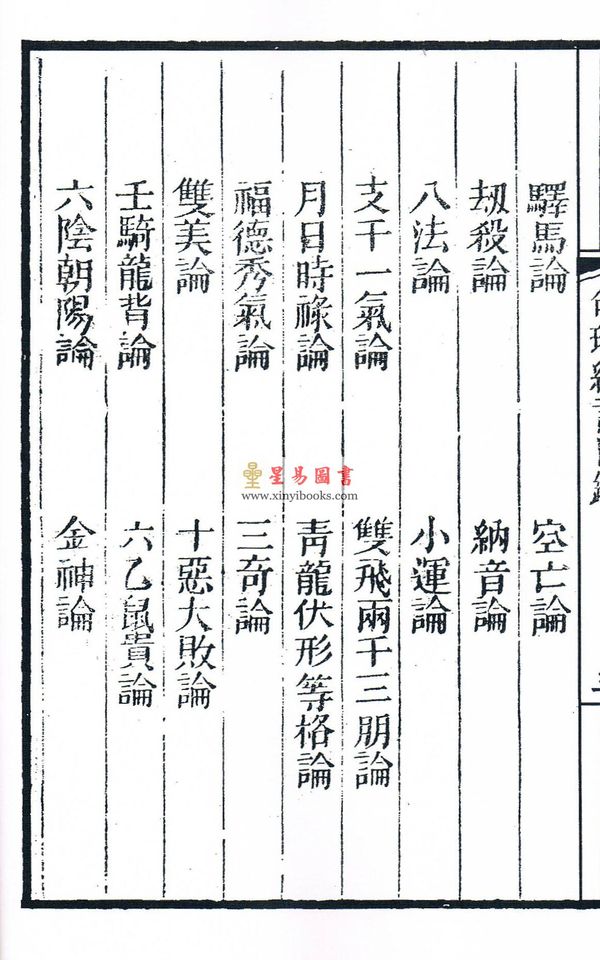 驛馬論　空亡論
刼殺論　納音論
八法論　小運論
支干一氣論　雙飛兩干三朋論
月日時祿論　青龍伏形等格論
福德秀氣論　三奇論
雙美論　十惡大敗論
壬騎龍背論　六乙鼠貴論
六陰朝陽論　金神論
星易圖書
www.xinyibooks.com